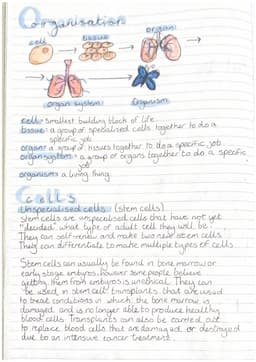 Organisation
cell
tissue
organ
organ system
organism
cell - smallest building block of life
tissue: a group of specialised cells together to do a
specific job
organ: a group of tissues together to do a specific job
organ system: a group of organs together to do a specific
job
organism: a living thing
Cells
Unspecialised cells (stem cells)
stem cells are unspecialised cells that have not yet
"decided" what type of adult cell they will be.
They can self-renew and make two new stem cells.
They can differentiate to make multiple types of cells.
Stem cells can usually be found in bone marrow or
early stage embyros. However some people believe
getting them from embyros is unethical. They can
be used in stem cell transplants that are used
to treat conditions in which the bone marrow is
damaged and is no longer able to produce healthy
blood cells. Transplants can also be carried out
to replace blood cells that are damaged or destroyed
due to an intensive cancer treatment.